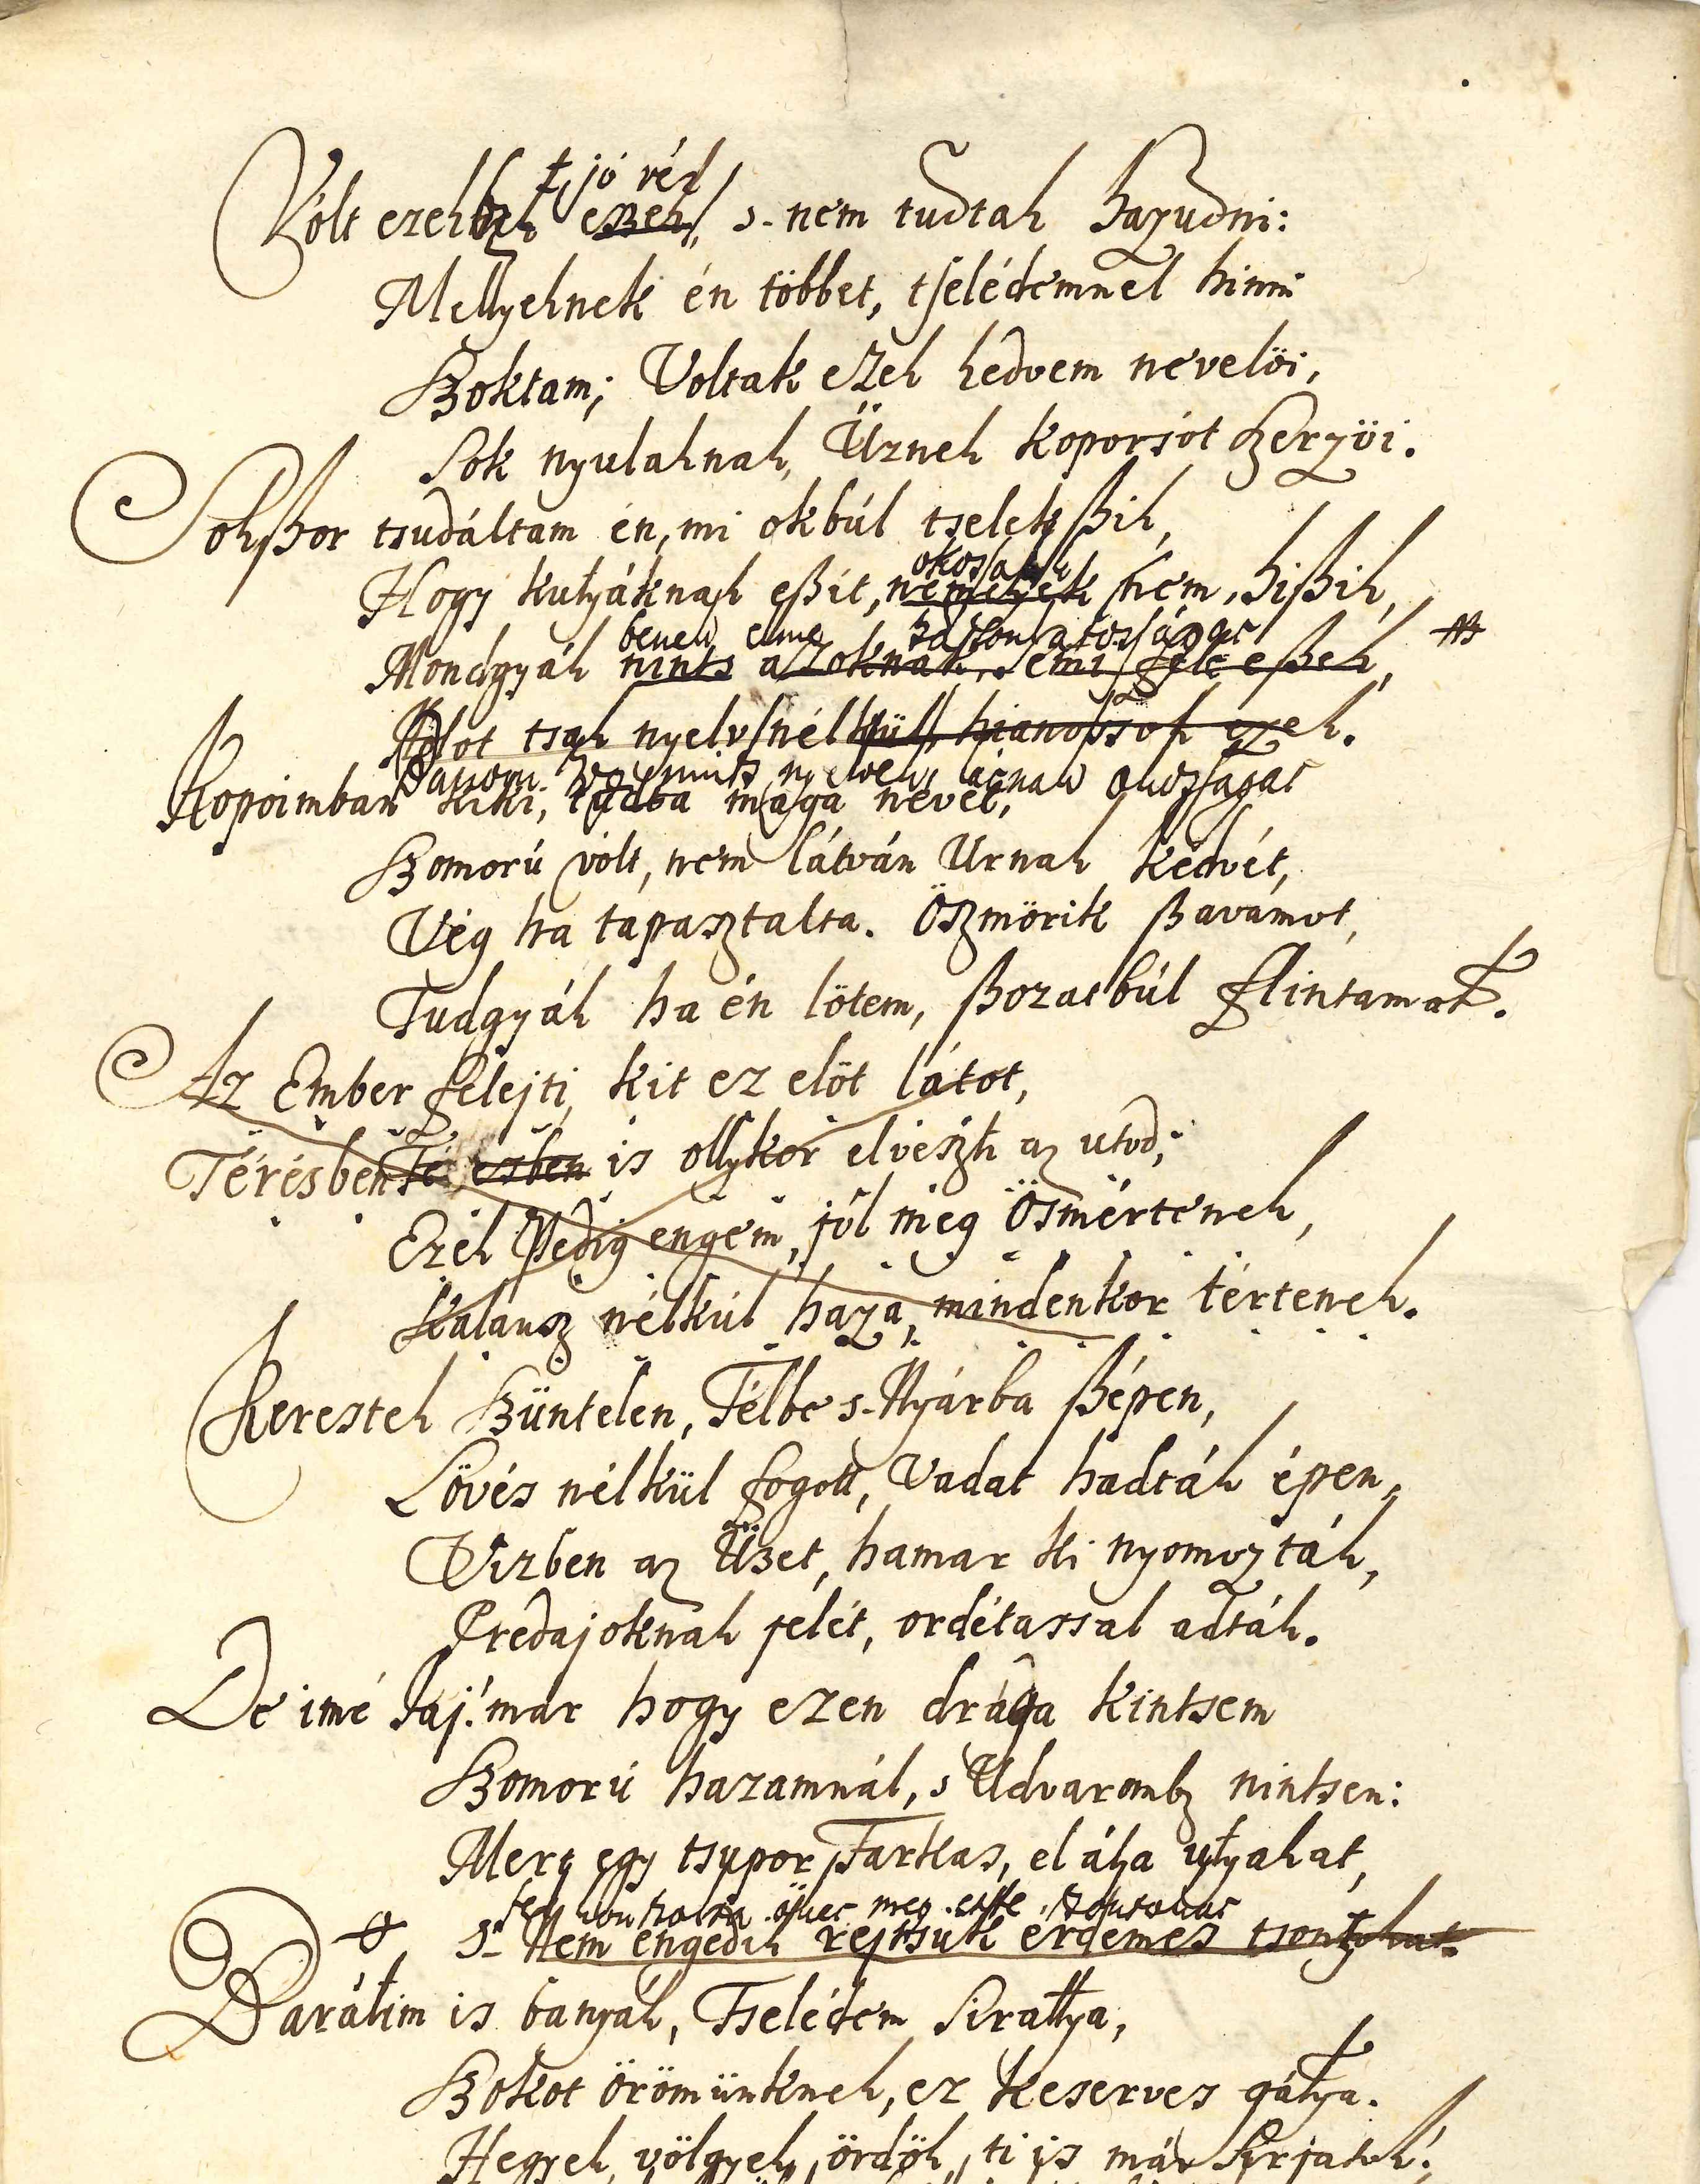 jó vér
Vólt ezekben eszek, s- nem tudtak hazudni:
Mellyeknek én többet, tselédemnél hinni
Szoktam; Voltak ezek kedvem nevelöi,
Sok nyulaknak, Üznek koporsót szerzöi.
Sokszor tsudáltam én, mi okbúl tselekszik,
okossan
Hogy kutyáknak eszit, némelyek nem hiszik,
Mondgyák nints azoknak semi féle eszek,
Szollot tsak nyelv nélkül, kianossok ezek.
Kopoimban kiki, tudta maga nevét,
Szomorú vólt, nem látván Urnak kedvét,
Vég ha tapasztalta. Öszmörik szavamot,
Tudgyák ha én lötem, szozatbúl flintamat.
Az Ember felejti, kit ez elöt látot,
Térésben is ollykor elveszti az utod;
Ezek Pedig engem, jól meg Ösmértenek,
Kalausz nélkúl haza, mindenkor térteneh.
Kerestek Szüntelen, Télbe s- Nyárba szépen,
Lövés nélkül fogott, Vadat hadták épen,
Vizben az Üzet, hamar ki nyomozták,
Predajoknak jelét, ordétassal adták.
De imé Jaj! már hogy ezen drága kintsem
Szomorú hazamnál, s Udvaromb nintsen:
Mert egy tsupor Farkas, el álta utyakat,
S- Nem engedik rejtsük érdemes tsontokat.
Barátim is banják, Tselédem Siratya,
Szokot örömünknek, ez keserves gátya.
Hegyek, völgyek, ördök, ti is már Sirjatok!